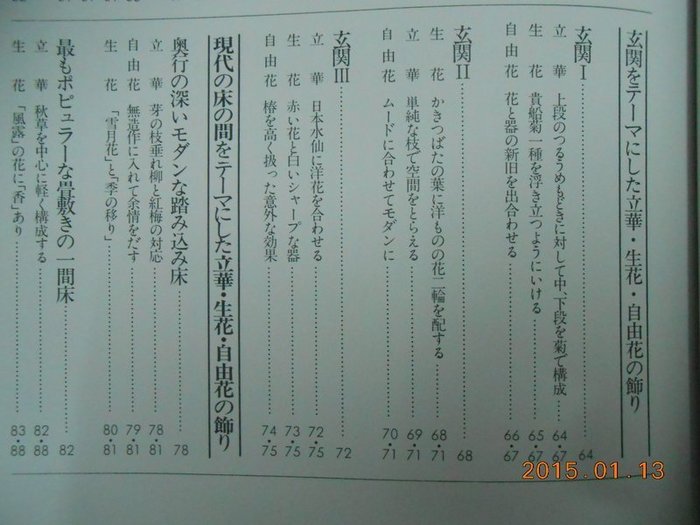 玄関をテーマにした立華・生花・自由花の飾り
玄関Ⅰ 64
立華 上段のつるうめもどきに対して中、下段を菊で構成 64・67
生花 貴船菊一種を浮き立つようにいける 65・67
自由花 花と器の新旧を出合わせる 66・67
玄関Ⅱ 68
生花 かきつばたの葉に洋もの花二輪を配する 68・71
立華 単純な枝で空間をとらえる 69・71
自由花 ムードに合わせてモダンに 70・71
玄関Ⅲ 72
立華 日本水仙に洋花を合わせる 72・75
生花 赤い花と白いシャープな器 73・75
自由花 椿を高く扱った意外な効果 74・75
現代の床の間をテーマにした立華・生花・自由花の飾り
奥行の深いモダンな踏み込み床 78
立華 芽の枝垂れ柳と紅梅の対応 78・81
自由花 無造作に入れて余情をだす 79・81
生花 「雪月花」と「季の移り」 80・81
最もポピュラーな畳敷きの一間床 82
立華 秋草を中心に軽く構成する 82・88
生花 「風露」の花に「香」あり 83・88
2015.01.13